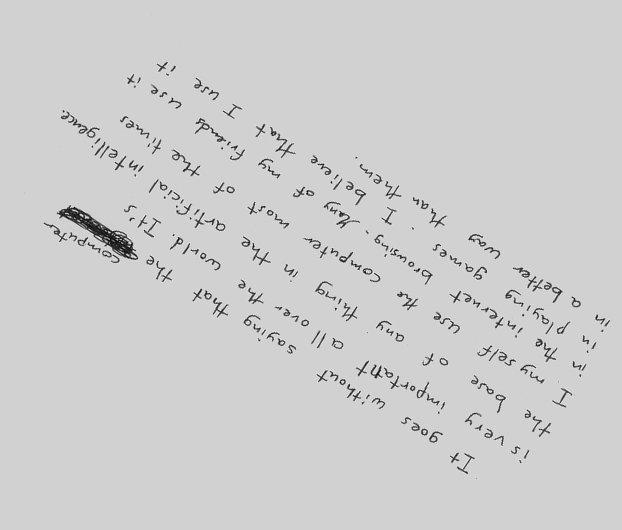 It goes without saying that the computer
is very important all over the world. It's
the base of any thing in the artificial intelligence.
I my self use the computer most of the times
in the internet browsing. Many of my friends use it
in playing games. I believe that I use it
in a better way than them.